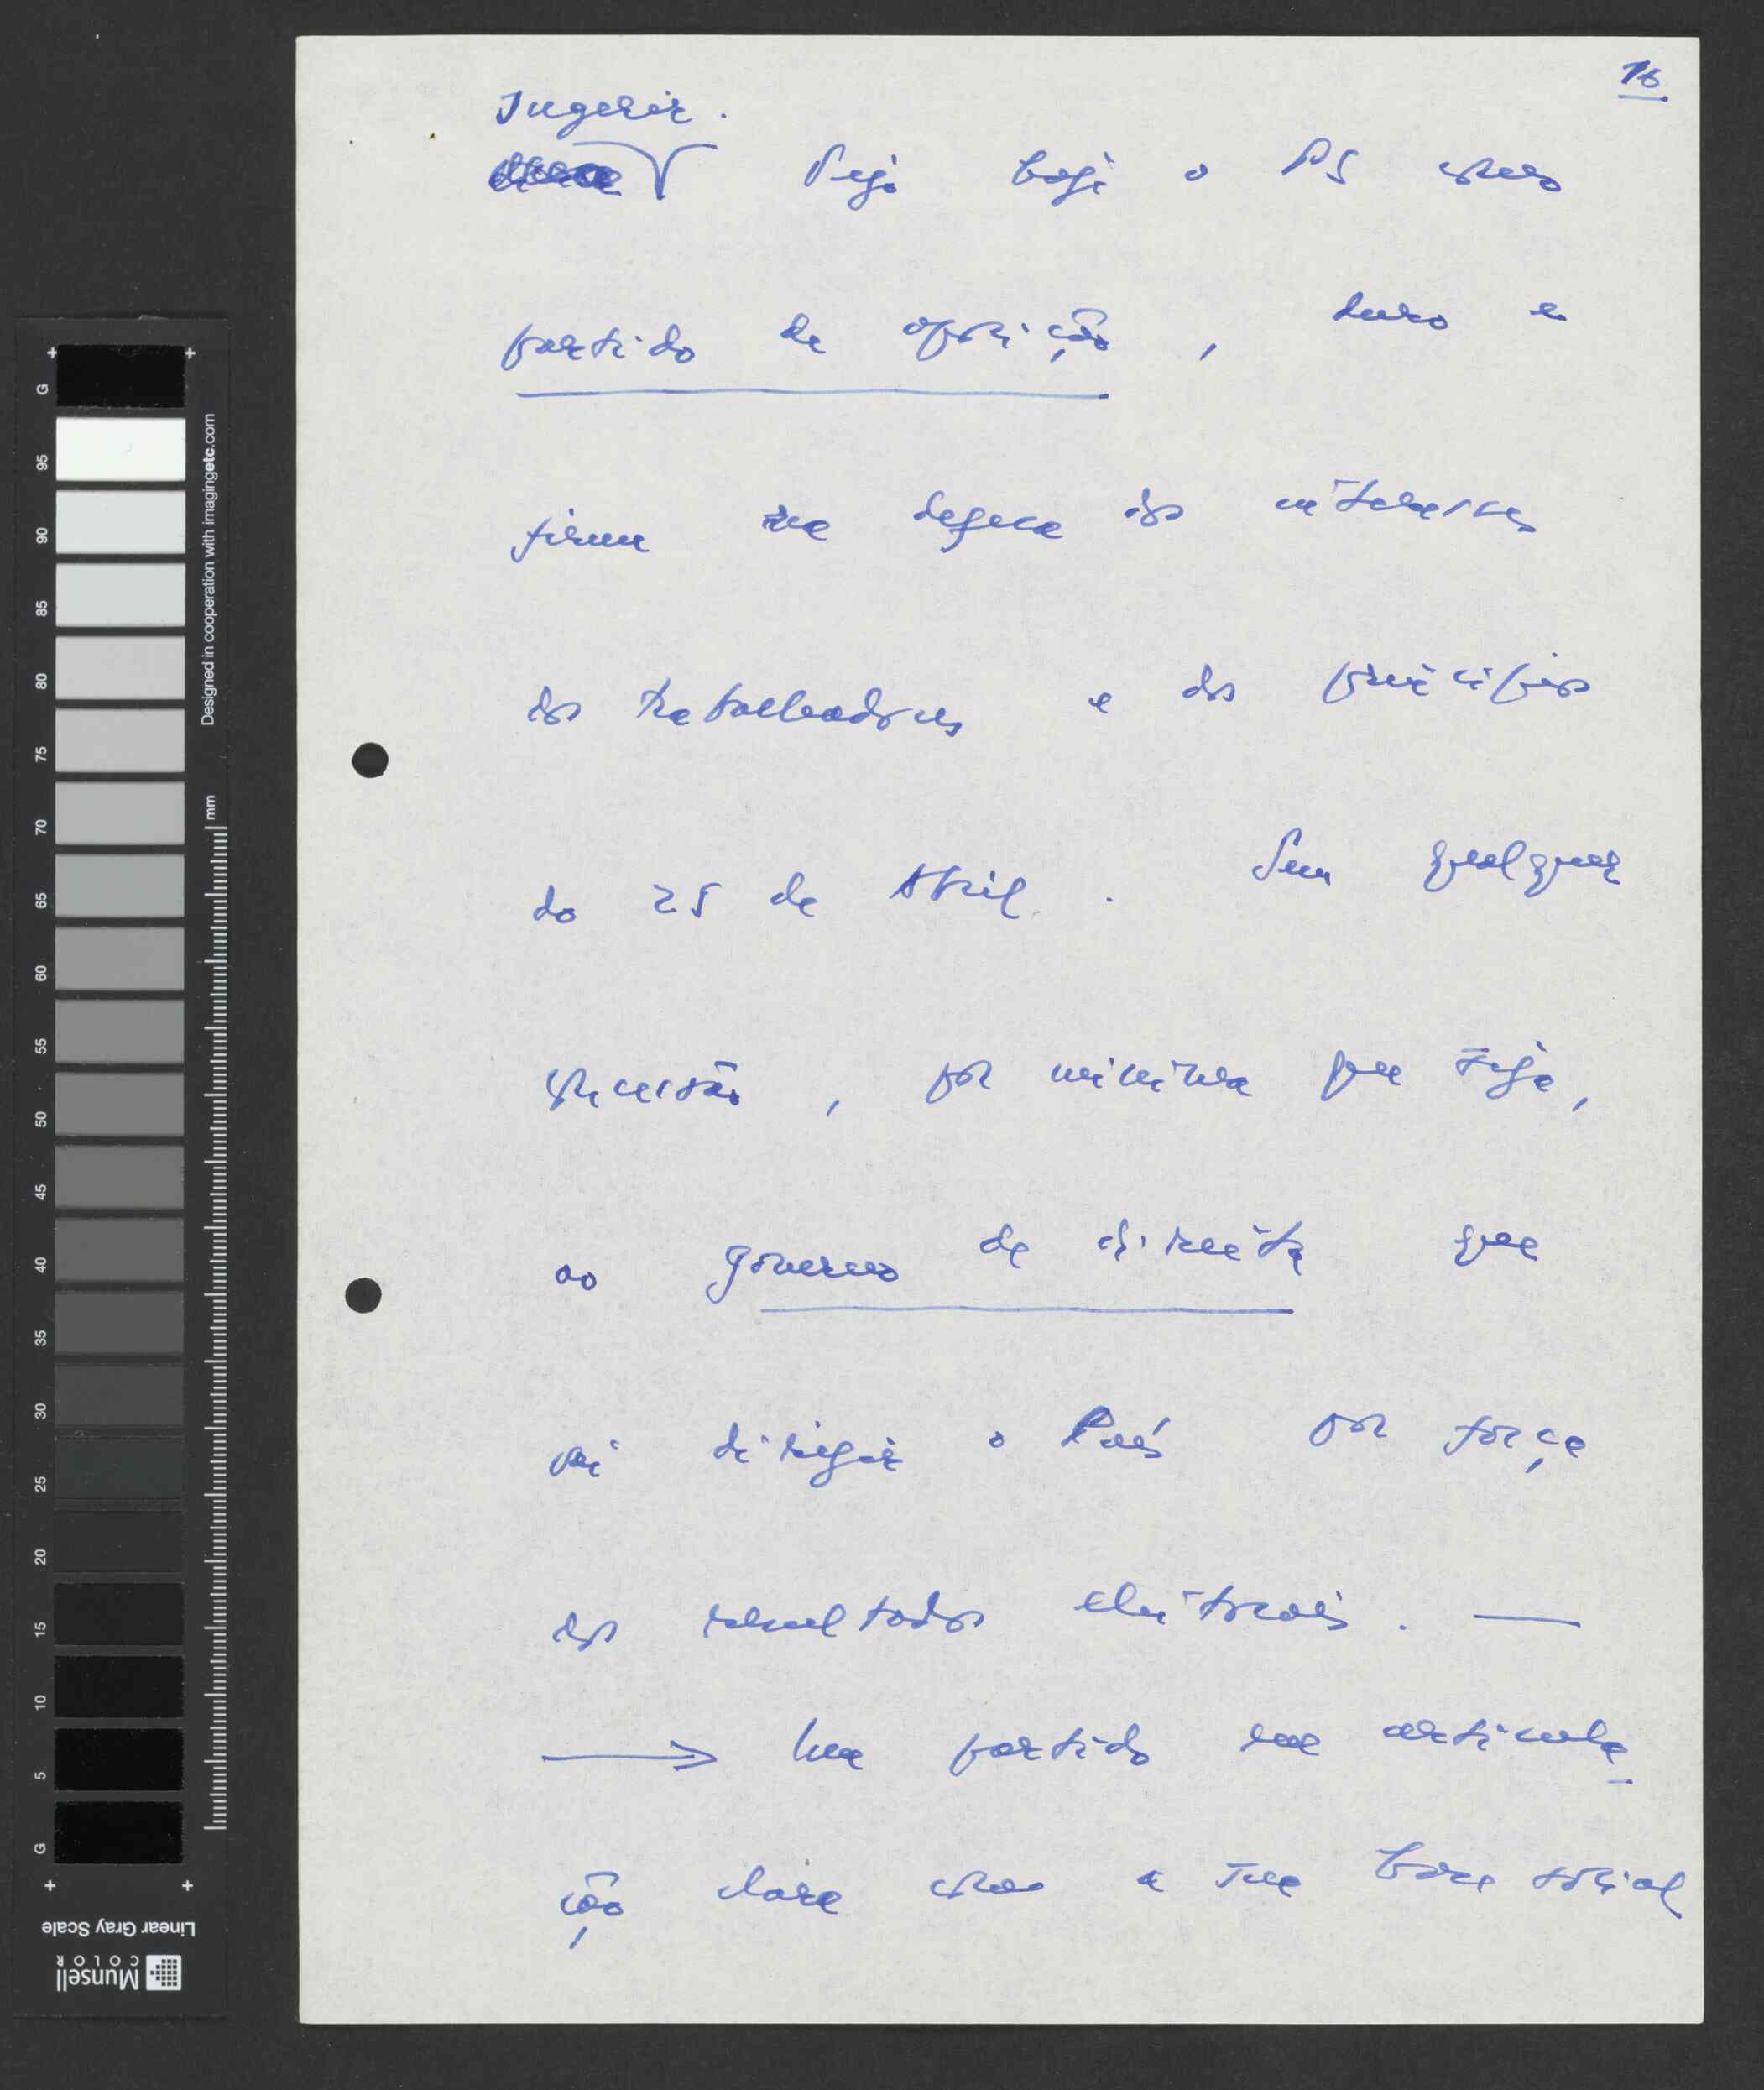 16
Sugerir.
Seja hoje o PS um
partido de oposição, duro e
firme na defesa dos interesses
dos trabalhadores e dos princípios
do 25 de Abril. Sem qualquer
concessão, por mínima que seja,
ao Governo de direita que
vai dirigir o País por força
dos resultados eleitorais. —
→ Um partido em articula-
ção clara com a sua base social
G
95
90
85
80
75
70
65
60
55
50
45
40
35
30
25
20
15
10
5
G
Designed in cooperation with imagingetc.com
mm
Linear Gray Scale
Munsell
COLOR